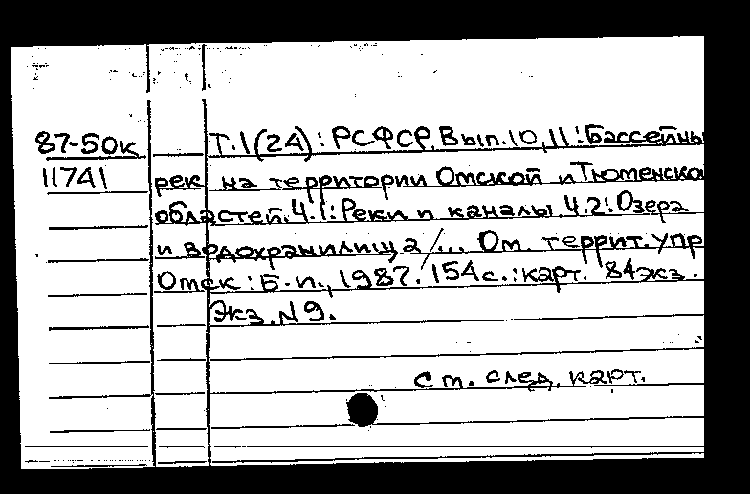 87-50к
11741
Т.1(24): РСФСР. Вып.10,11: Бассейны
рек на территории Омской и Тюменско
областей. Ч.1: Реки и каналы. Ч.2: Озера
и водохранилища/... Ом. террит. упр
Омск: Б.и., 1987. 154с.: карт. 84экз.
Экз. N9.
См. след. карт.